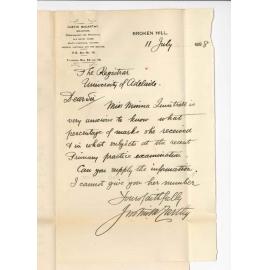 JUSTIN McCARTHY,
SOLICITOR,
BROKEN HILL,
11 July 8
The Registrar
University of Adelaide.
Dear Sir
Miss Minna
very anxious to know what
percentage of marks she received
& in what subjects at the recent
Primary practice examination
Can you supply the information.
I cannot give you her number
Yours faithfully
Justin McCarthy